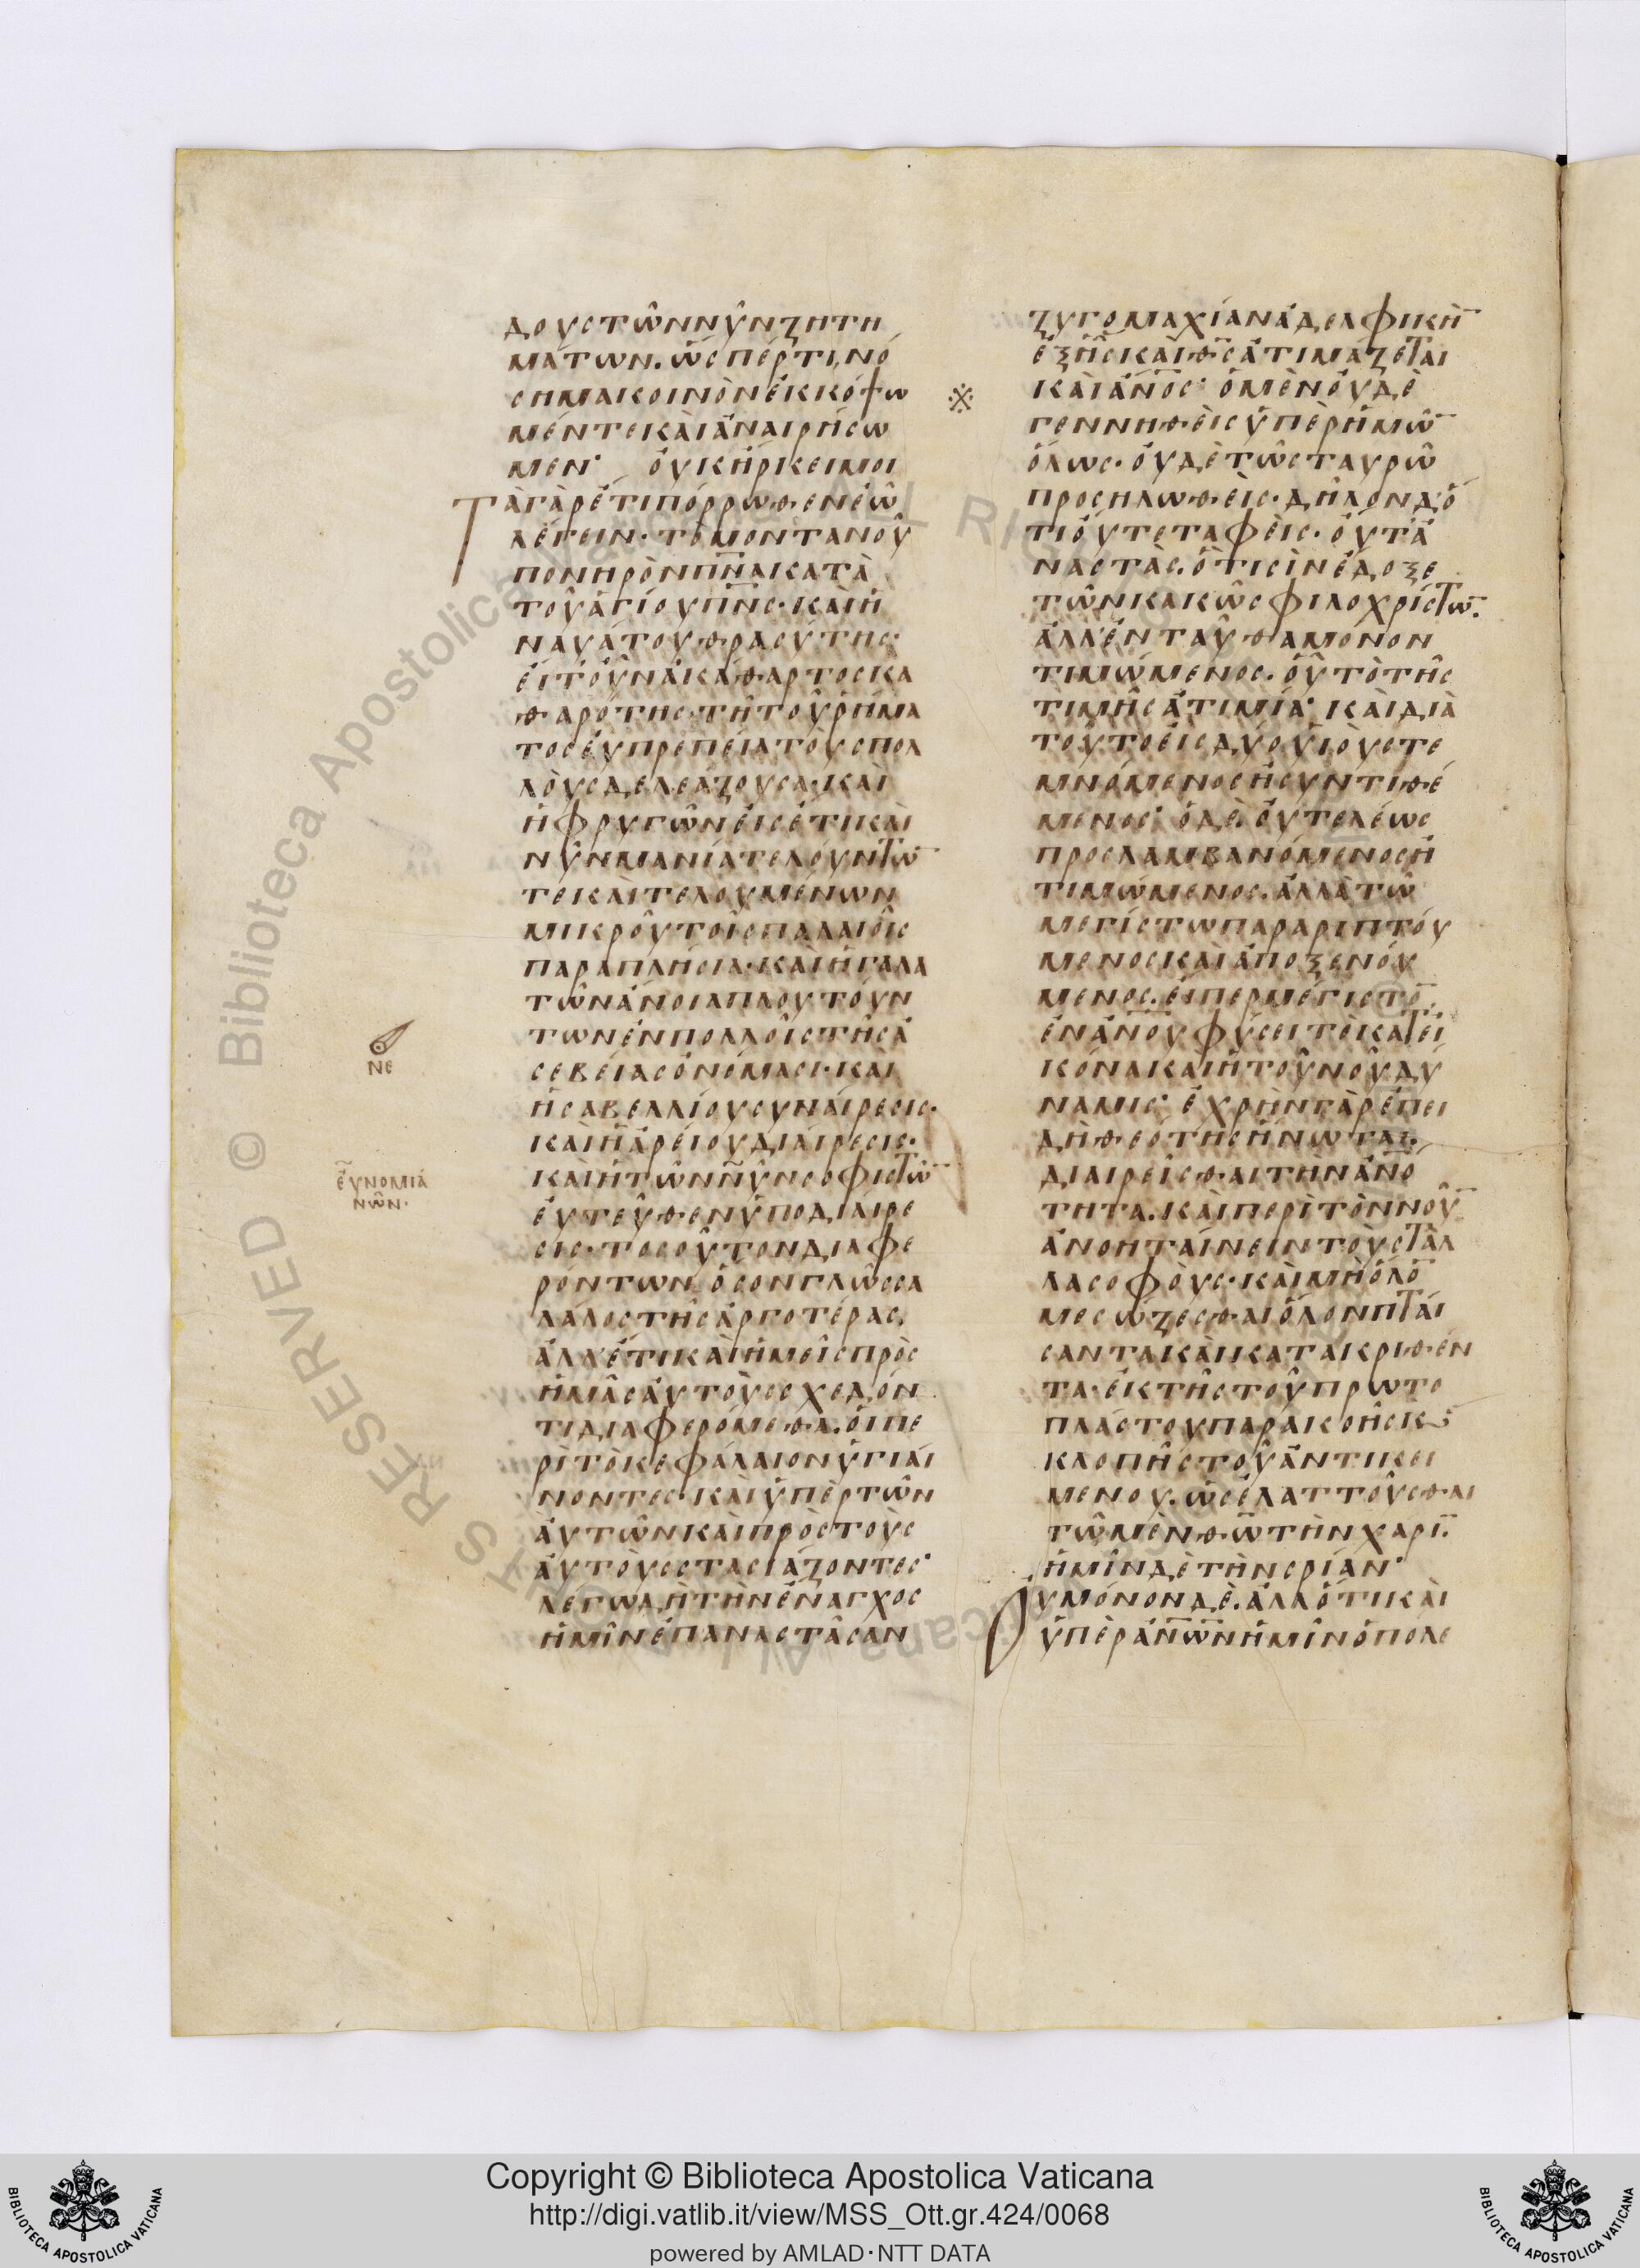 ΔΟΥC ΤΩ͂Ν ΝΥ͂Ν ΖΗΤΗ
ΜΆΤΩΝ. Ὥ́CΠΕΡ ΤΙ ΝΌ
CΗΜΑ ΚΟΙΝῸΝ ἘΚΚΌΨΩ
ΜΈΝ ΤΕ ΚΑῚ ἈΝΑΙΡΉCΩ
ΜΕΝ· ΟΥΚ ΉΡΚΕΙ ΜΟΙ
ΤᾺ ΓᾺΡ ἜΤΙ ΠΌΡΡΩΘΕΝ ἘΩ͂
ΛΈΓΕΙΝ· ΤῸ ΜΟΝΤΑΝΟΥ͂
ΠΟΝΗΡῸΝ ΠΝ̅Α ΚΑΤᾺ
ΤΟΥ͂ ἉΓΊΟΥ ΠΝ̅C· ΚΑῚ Ἡ
ΝΑΥΆΤΟΥ ΘΡΑCΎΤΗC·
ΕΊΤ ΟΥ̓͂Ν ἈΚΆΘΑΡΤΟC ΚΑ
ΘΑΡΌΤΗC· ΤΗ͂ ΤΟΥ͂ ῬΉΜΑ
ΤΟC ΕΥ̓ΠΡΕΠΕΊΑ ΤΟῪC ΠΟΛ
ΛΟῪC ΔΕΛΕΆΖΟΥCΑ· ΚΑῚ
Ἡ ΦΡΥΓΩ͂Ν ΕἸCΈΤΙ ΚΑῚ
ΝΥ͂Ν ΜΑΝΊΑ ΤΕΛΟΎΝΤΩ̅
ΤΕ ΚΑῚ ΤΕΛΟΥΜΈΝΩΝ
ΜΙΚΡΟΥ͂ ΤΟΙ͂C ΠΑΛΑΙΟΙ͂C
ΠΑΡΑΠΛΗCΊΑ· ΚΑῚ Ἡ ΓΑΛΑ
ΤΩ͂Ν ἌΝΟΙΑ ΠΛΟΥΤΟΎΝ
ΤΩΝ ἘΝ ΠΟΛΛΟΙ͂C ΤΗ͂C Ἀ
CΕΒΕΊΑC ὈΝΌΜΑCΙ· ΚΑῚ
Ἡ CΑΒΕΛΛΊΟΥ CΥΝΑΊΡΕCΙC·
ΚΑῚ Ἡ ἈΡΕΊΟΥ ΔΙΑΊΡΕCΙC·
ΚΑῚ Ἡ ΤΩ͂Ν ΝΥ͂Ν CΟΦΙCΤΩ̅
ἘΝΤΕΥ͂ΘΕΝ ὙΠΟΔΙΑΊΡΕ
CΙC· ΤΟCΟΥ͂ΤΟΝ ΔΙΑΦΕ
ΡΌΝΤΩΝ, ὍCΟΝ ΓΛΩ͂CCΑ
ΛΆΛΟC ΤΗ͂C ἈΡΓΟΤΈΡΑC,
ἈΛΛ' ἜΤΙ ΚΑῚ ἩΜΕΙ͂C ΠΡῸC
ἩΜΑ͂C ΑΥ̓ΤΟῪC CΧΕΔΌΝ
ΤΙ ΔΙΑΦΕΡΌΜΕΘΑ. ΟἹ ΠΕ
ΡῚ ΤῸ ΚΕΦΆΛΑΙΟΝ ὙΓΙΑΊ
ΝΟΝΤΕC· ΚΑῚ ὙΠῈΡ ΤΩ͂Ν
ΑΥ̓ΤΩ͂Ν ΚΑῚ ΠΡῸC ΤΟῪC
ΑΥ̓ΤΟῪC CΤΑCΙΆΖΟΝΤΕC·
ΛΈΓΩ ΔῊ ΤῊΝ ἜΝΑΓΧΟC
ἩΜΙ͂Ν ἘΠΑΝΑCΤΑ͂CΑΝ
ΝΕ
ΕΥ̓ΝΟΜΙΑ
ΝΩ͂Ν·
ΖΥΓΟΜΑΧΊΑΝ ἈΔΕΛΦΙΚΉ̅
ἘΞ ΗΣ ΚΑῚ Θ̅C ἈΤΙΜΆΖΕΤΑΙ
ΚΑῚ ἌΝ̅ΟC· Ὁ ΜῈΝ ΟΥ̓ΔῈ
ΓΕΝΝΗΘΕῚC ὙΠῈΡ ἩΜΩ̅
ὍΛΩC· ΟΥ̓ΔῈ ΤΩ͂ CΤΑΥΡΩ͂
ΠΡΟCΗΛΩΘΕῚC· ΔΗ͂ΛΟΝ Δ' Ὅ
ΤΙ ΟΎΤΕ ΤΑΦΕῚC· ΟΎΤ' Ἀ
ΝΑCΤᾺC. Ὅ ΤΙCΙΝ ἜΔΟΞΕ
ΤΩ͂Ν ΚΑΚΩ͂C ΦΙΛΟΧΡΊCΤΩ̅.
ἈΛΛ' ἘΝΤΑΥ͂ΘΑ ΜΌΝΟΝ
ΤΙΜΏΜΕΝΟC. ΟΥ͂ ΤῸ ΤΗ͂C
ΤΙΜΗ͂C ἈΤΙΜΊΑ· ΚΑῚ ΔΙᾺ
ΤΟΥ͂ΤΟ ΕἸC ΔΎΟ ΥἹΟῪC ΤΕ
ΜΝΌΜΕΝΟC Ἢ CΥΝΤΙΘΈ
ΜΕΝΟC· Ὁ ΔῈ ΟΥ̓ ΤΕΛΈΩC
ΠΡΟCΛΑΜΒΑΝΌΜΕΝΟC Ἢ
ΤΙΜΏΜΕΝΟC. ἈΛΛᾺ ΤΩ͂
ΜΕΓΊCΤΩ ΠΑΡΑΡΙΠΤΟΎ
ΜΕΝΟC ΚΑῚ ἈΠΟΞΕΝΟΎ
ΜΕΝΟC. ΕΊΠΕΡ ΜΈΓΙCΤΟ̅
ἘΝ ἈΝ̅ΟΥ ΦΎCΕΙ ΤῸ ΚΑΤ' ΕἸ
ΚΌΝΑ ΚΑῚ Ἡ ΤΟΥ͂ ΝΟΥ͂ ΔΎ
ΝΑΜΙC· ἘΧΡΗ͂Ν ΓᾺΡ ἘΠΕΙ
ΔῊ ΘΕΌΤΗC ἩΝΩΤΑΙ.
ΔΙΑΙΡΕΙ͂CΘΑΙ ΤῊΝ ἈΝ̅Ο
ΤΗΤΑ. ΚΑῚ ΠΕΡῚ ΤῸΝ ΝΟΥ̅
ἈΝΟΗΤΑΊΝΕΙΝ ΤΟῪC ΤἌΛ
ΛΑ CΟΦΟΎC· ΚΑῚ ΜῊ ὍΛΟ̅
ΜΕ CΏΖΕCΘΑΙ ὍΛΟΝ ΠΤΑΊ
CΑΝΤΑ ΚΑῚ ΚΑΤΑΚΡΙΘΈΝ
ΤΑ· ἘΚ ΤΗ͂C ΤΟΥ͂ ΠΡΩΤΟ
ΠΛΆCΤΟΥ ΠΑΡΑΚΟΗ͂C Κ
ΚΛΟΠΗ͂C ΤΟΥ͂ ἈΝΤΙΚΕΙ
ΜΈΝΟΥ. ὩC ἘΛΑΤΤΟΥ͂CΘΑΙ
ΤΩ͂ ΜῈΝ Θ̅Ω ΤῊΝ ΧΆΡΙ̅.
ἩΜΙ͂Ν ΔῈ ΤῊΝ CΡΙ̅ΑΝ·
ΟΥ̓ ΜΌΝΟΝ ΔῈ. ἈΛΛ' ὍΤΙ ΚΑῚ
ὙΠῈΡ ἈΝ̅ΩΝ ἩΜΙ͂Ν Ὁ ΠΌΛΕ
Copyright © Biblioteca Apostolica Vaticana
http://digi.vatlib.it/view/MSS_Ott.gr.424/0068
powered by AMLAD·NTT DATA
BIBLIOTECA APOSTOLICA VATICANA
BIBLIOTECA APOSTOLICA VATICANA